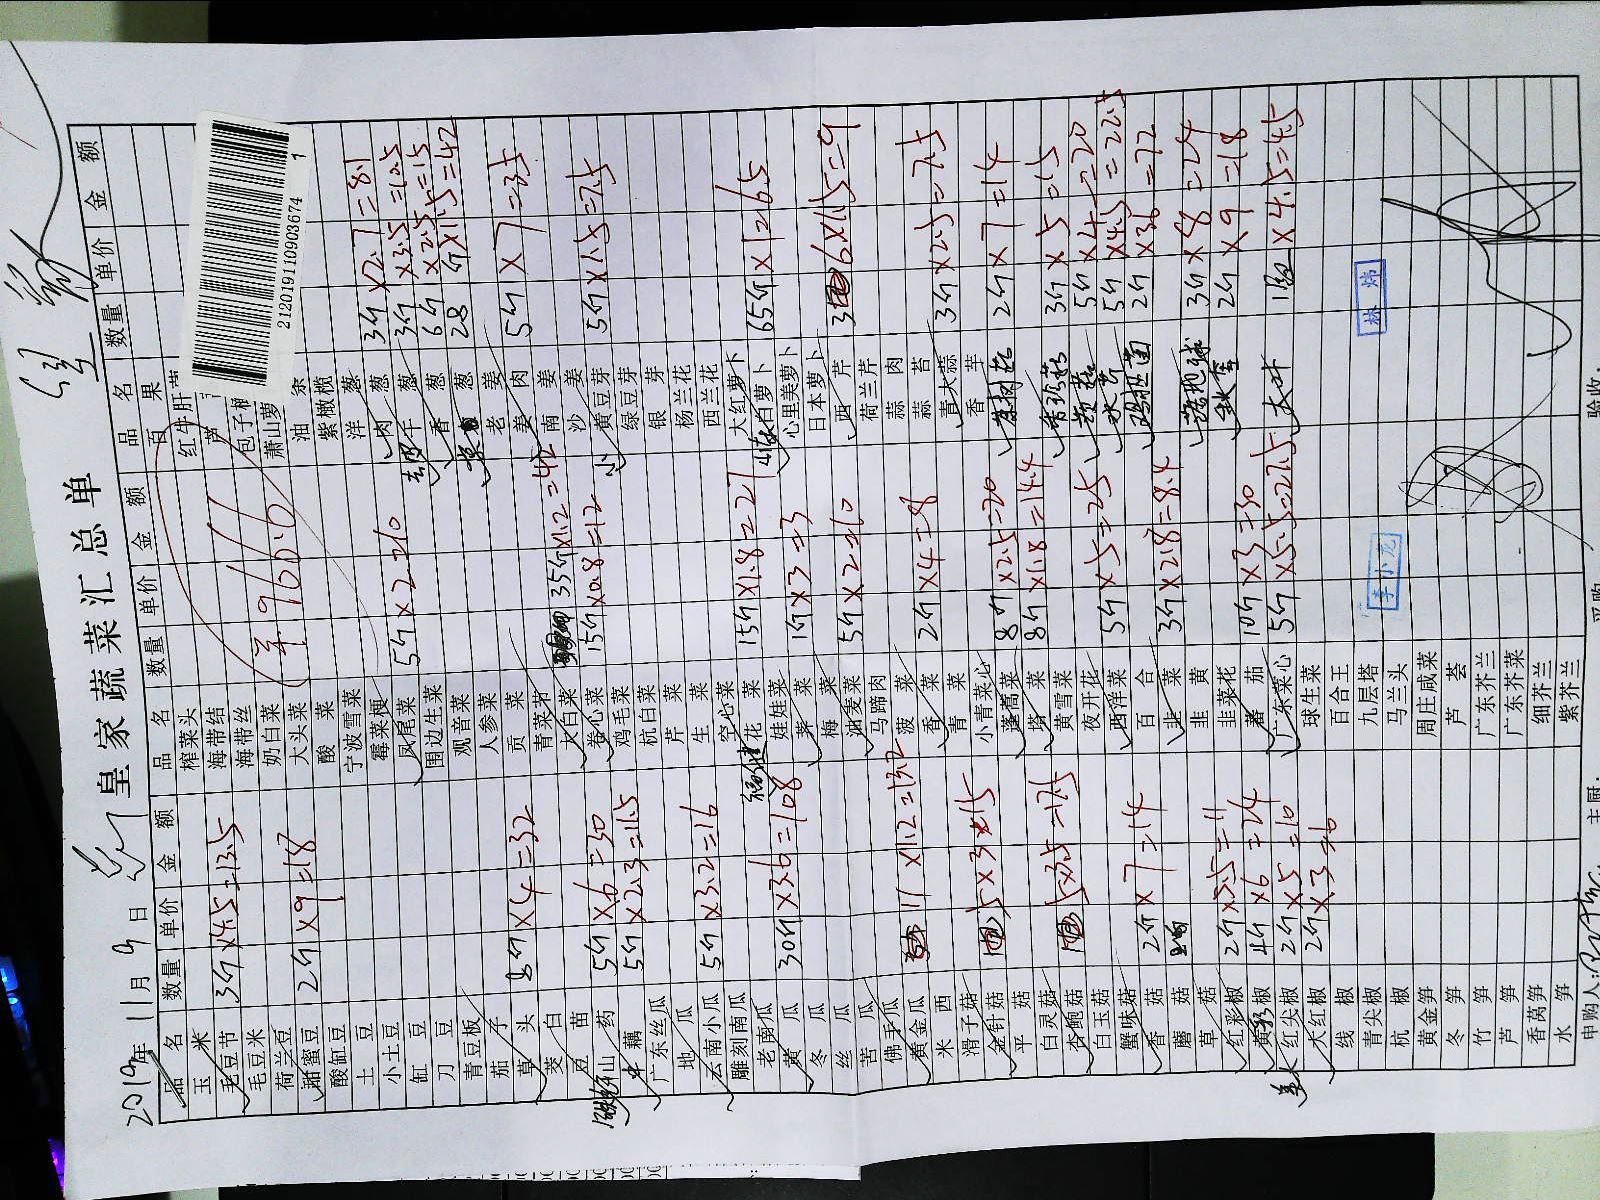 皇家蔬菜汇总单
2019年11月9日
212019110903674 1
966.6
品名 数量 单价 金额 品名 数量 单价 金额 品名 数量 单价 金额
玉米 榨菜头 百果
毛豆节 3斤×4.5=13.5 海带结 红牛肝菌
毛豆米 海带丝 芦
荷兰豆 奶白菜 包子
甜蜜豆 2斤×9=18 大头菜 萧山萝
酸缸豆 酸菜 油条
土豆 宁波雪菜 紫橄榄
小土豆 霉菜梗 洋葱 3斤×2.7=8.1
缸豆 凤尾菜 5斤×2=10 肉葱 3斤×3.5=10.5
刀豆 围边生菜 干葱 6斤×2.5=15
青豆板 观音菜 香葱 28斤×1.5=42
茄子 人参菜 京葱
草头 8斤×4=32 贡菜 老姜 5斤×7=35
茭白 青菜苔 姜肉
豆苗 大白菜 35斤×1.2=42 南姜
铁杆山药 5斤×6=30 卷心菜 15斤×0.8=12 沙姜 5斤×1.5=7.5
藕 5斤×2.3=11.5 鸡毛菜 黄豆芽
广东丝瓜 杭白菜 绿豆芽
地瓜 芹菜 银芽
云南小瓜 5斤×3.2=16 生菜 杨兰花
雕刻南瓜 空心菜 西兰花
老南瓜 花菜 15斤×1.8=27 大红萝卜
黄瓜 30斤×3.6=108 娃娃菜 白萝卜 65斤×1=65
冬瓜 荠菜 1斤×3=3 心里美萝卜
丝瓜 梅菜 日本萝卜
苦瓜 油麦菜 5斤×2=10 西芹 6×1.5=9
佛手瓜 马蹄肉 荷兰芹
黄金瓜 11×12=132 菠菜 蒜肉
米西 香菜 2斤×4=8 蒜苔
滑子菇 青菜 青大蒜 3斤×2.5=7.5
金针菇 5×3=15 小青菜心 香芋
平菇 蓬蒿菜 8斤×2.5=20 茶树菇 2斤×7=14
白灵菇 塔菜 8斤×1.8=14.4
杏鲍菇 5×3.5=17.5 黄雪菜 3斤×5=15
白玉菇 夜开花 5斤×4=20
蟹味菇 西洋菜 5斤×5=25 5斤×4.5=22.5
香菇 2斤×7=14 百合 2斤×36=72
蘑菇 韭菜 3斤×2.8=8.4
草菇 韭黄 3斤×8=24
红彩椒 2斤×5.5=11 韭菜花 2斤×9=18
黄彩椒 4斤×6=24 番茄 10斤×3=30
红尖椒 2斤×5=10 广东菜心 5斤×5.5=27.5 ×4.5=4.5
大红椒 2斤×3=6 球生菜
线椒 百合王
青尖椒 九层塔
杭椒 马兰头
黄金笋 周庄咸菜
冬笋 芦荟
竹笋 广东芥兰
芦笋 广东芥菜
香莴笋 细芥兰
水笋 紫芥兰
李小龙
林炜
申购人: 主厨: 采购 验收: